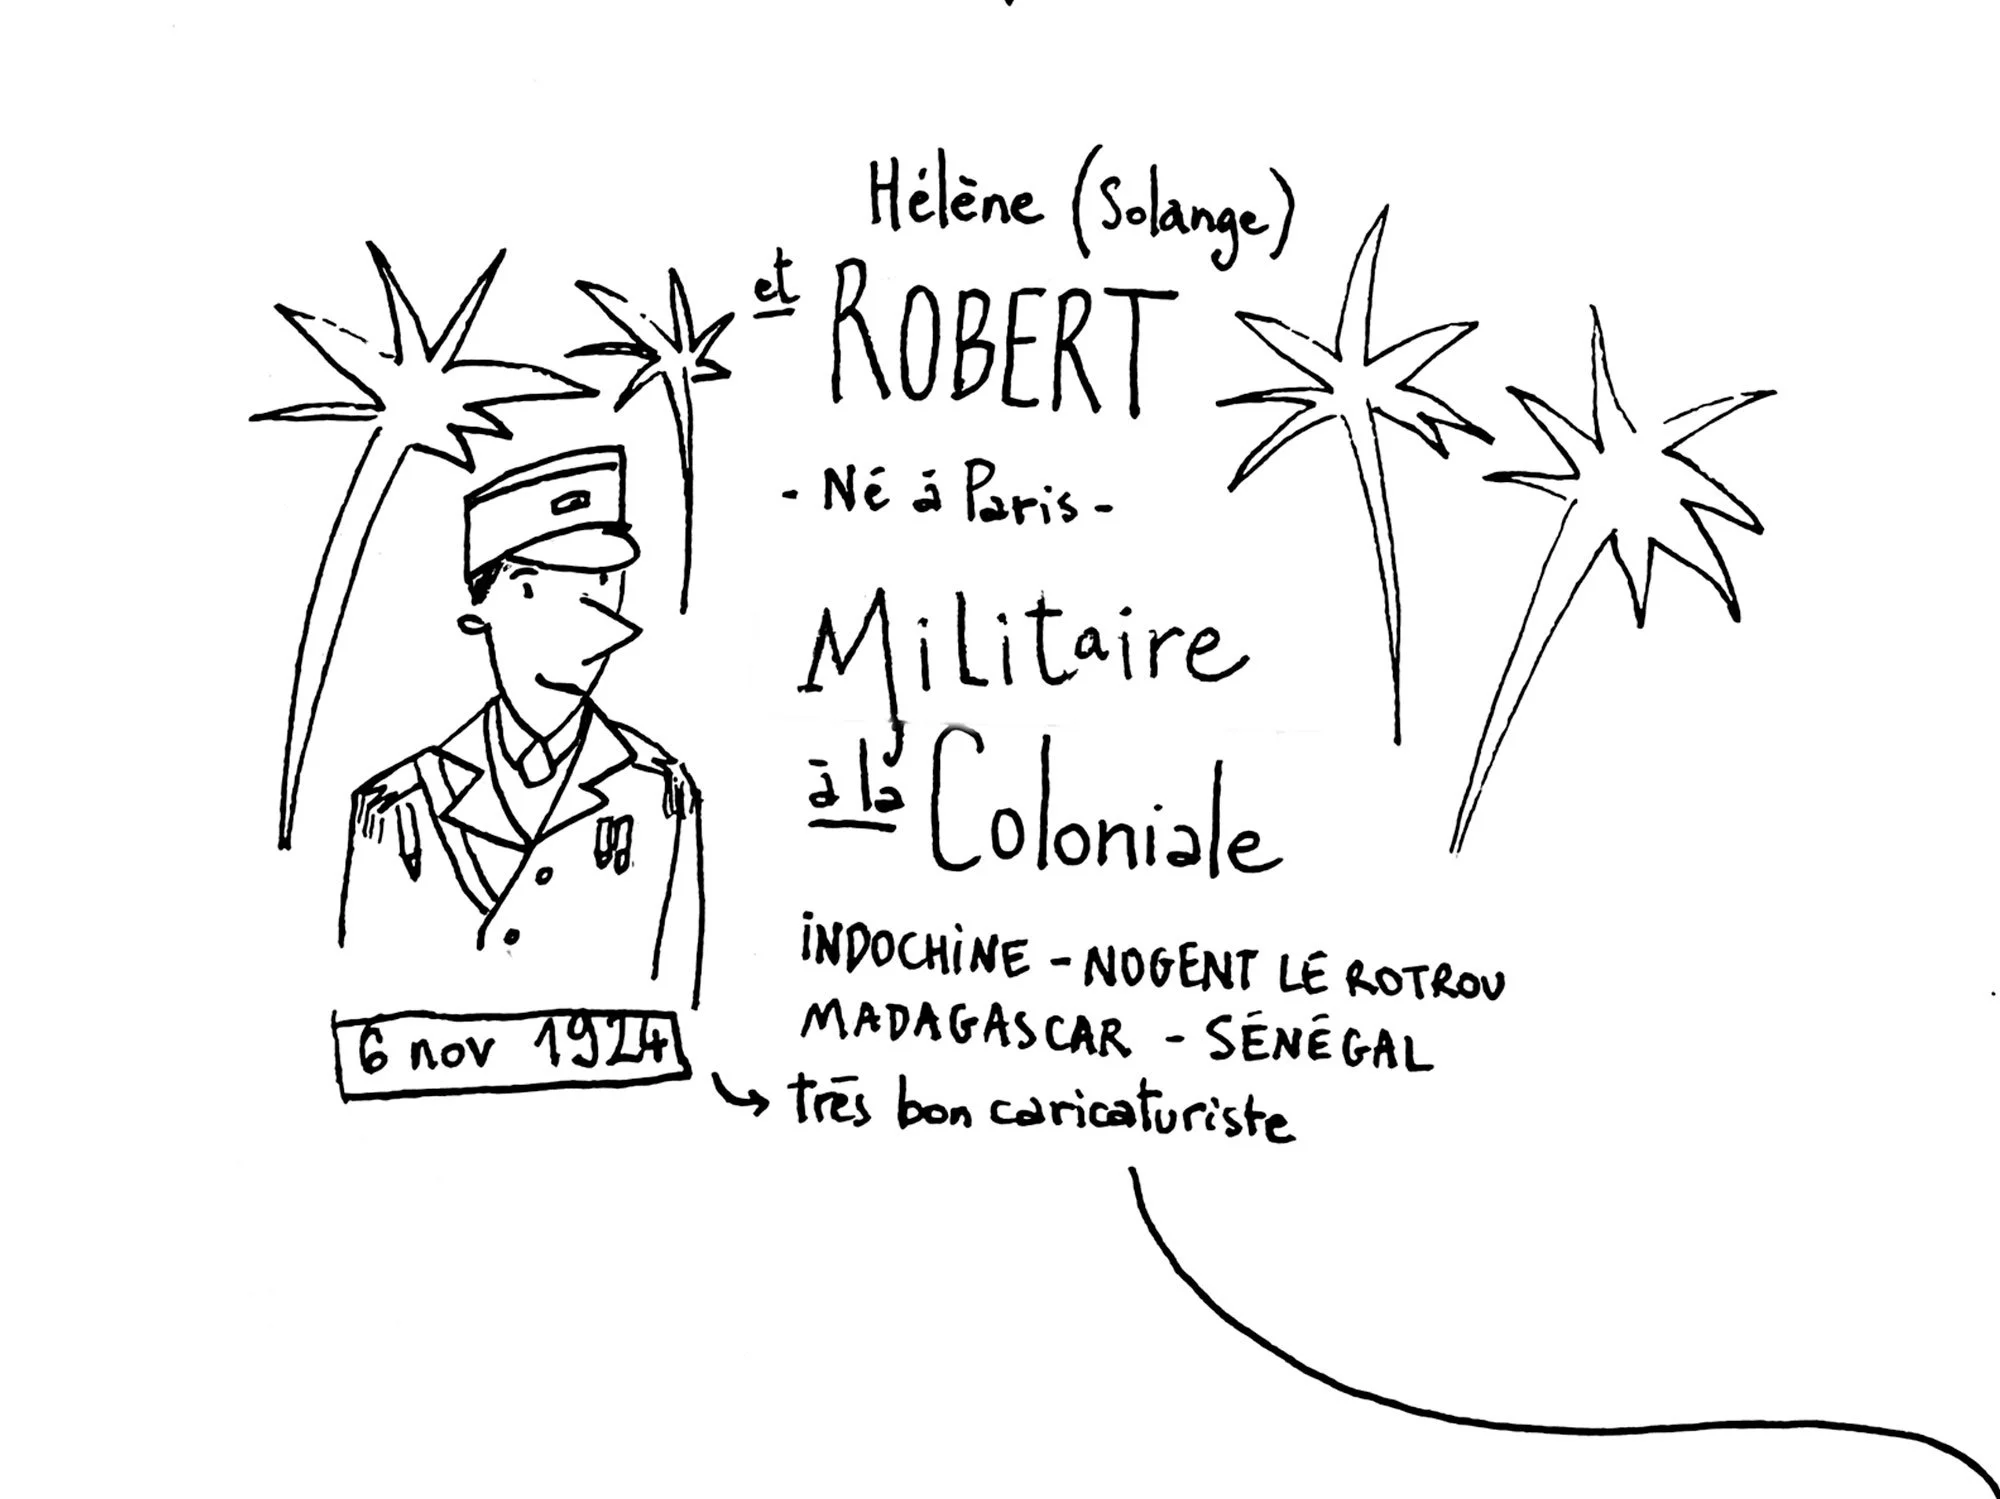 Hélène (Solange)
et ROBERT
- Né à Paris -
Militaire
à la Coloniale
INDOCHINE - NOGENT LE ROTROU
MADAGASCAR - SÉNÉGAL
6 nov 1924
très bon caricaturiste